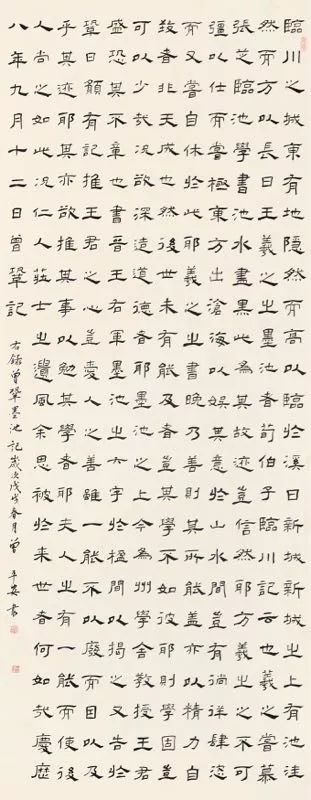 臨川之城東有地隱然而高以臨於溪曰新城新城之上有池洼
然而方以長曰王羲之之墨池者荀伯子臨川記云也羲之嘗慕
張芝臨池學書池水盡黑此為其故迹豈信然耶方羲之之不可
彊以仕而嘗極東方出滄海以娛其意於山水之間豈有徜徉肆恣
而又嘗自休於此耶羲之之書晚乃善則其所能蓋亦以精力自
致者非天成也然後世未有能及者豈其學不如彼耶則學固豈
可以少哉況欲深造道德者耶墨池之上今為州學舍教授王君
盛恐其不章也書晉王右軍墨池之六字於楹間以揭之又告於
鞏曰願有記推王君之心豈愛人之善雖一能不以廢而因以及
乎其迹耶其亦欲推其事以勉其學者耶夫人之有一能而使後
人尚之如此況仁人莊士之遺風余思被於來世者何如哉慶歷
八年九月十二日曾鞏記
右錄曾鞏墨池記歲次戊戌春月曾平安書